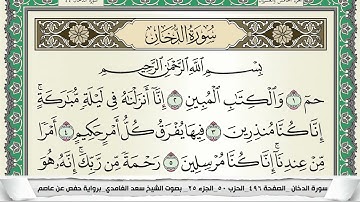 سُورَةُ الدُّخَانِ
بِسْمِ اللَّهِ الرَّحْمَٰنِ الرَّحِيمِ
حمٓ ١ وَالْكِتَابِ الْمُبِينِ ٢ إِنَّا أَنزَلْنَاهُ فِي لَيْلَةٍ مُّبَارَكَةٍ ۚ
إِنَّا كُنَّا مُنذِرِينَ ٣ فِيهَا يُفْرَقُ كُلُّ أَمْرٍ حَكِيمٍ ٤ أَمْرًا
مِّنْ عِندِنَا ۚ إِنَّا كُنَّا مُرْسِلِينَ ٥ رَحْمَةً مِّن رَّبِّكَ ۚ إِنَّهُ هُوَ
سورة الدخان_الصفحة ٤٩٦_الحزب ٥٠_الجزء ٢٥_بصوت الشيخ سعد الغامدي_برواية حفص عن عاصم